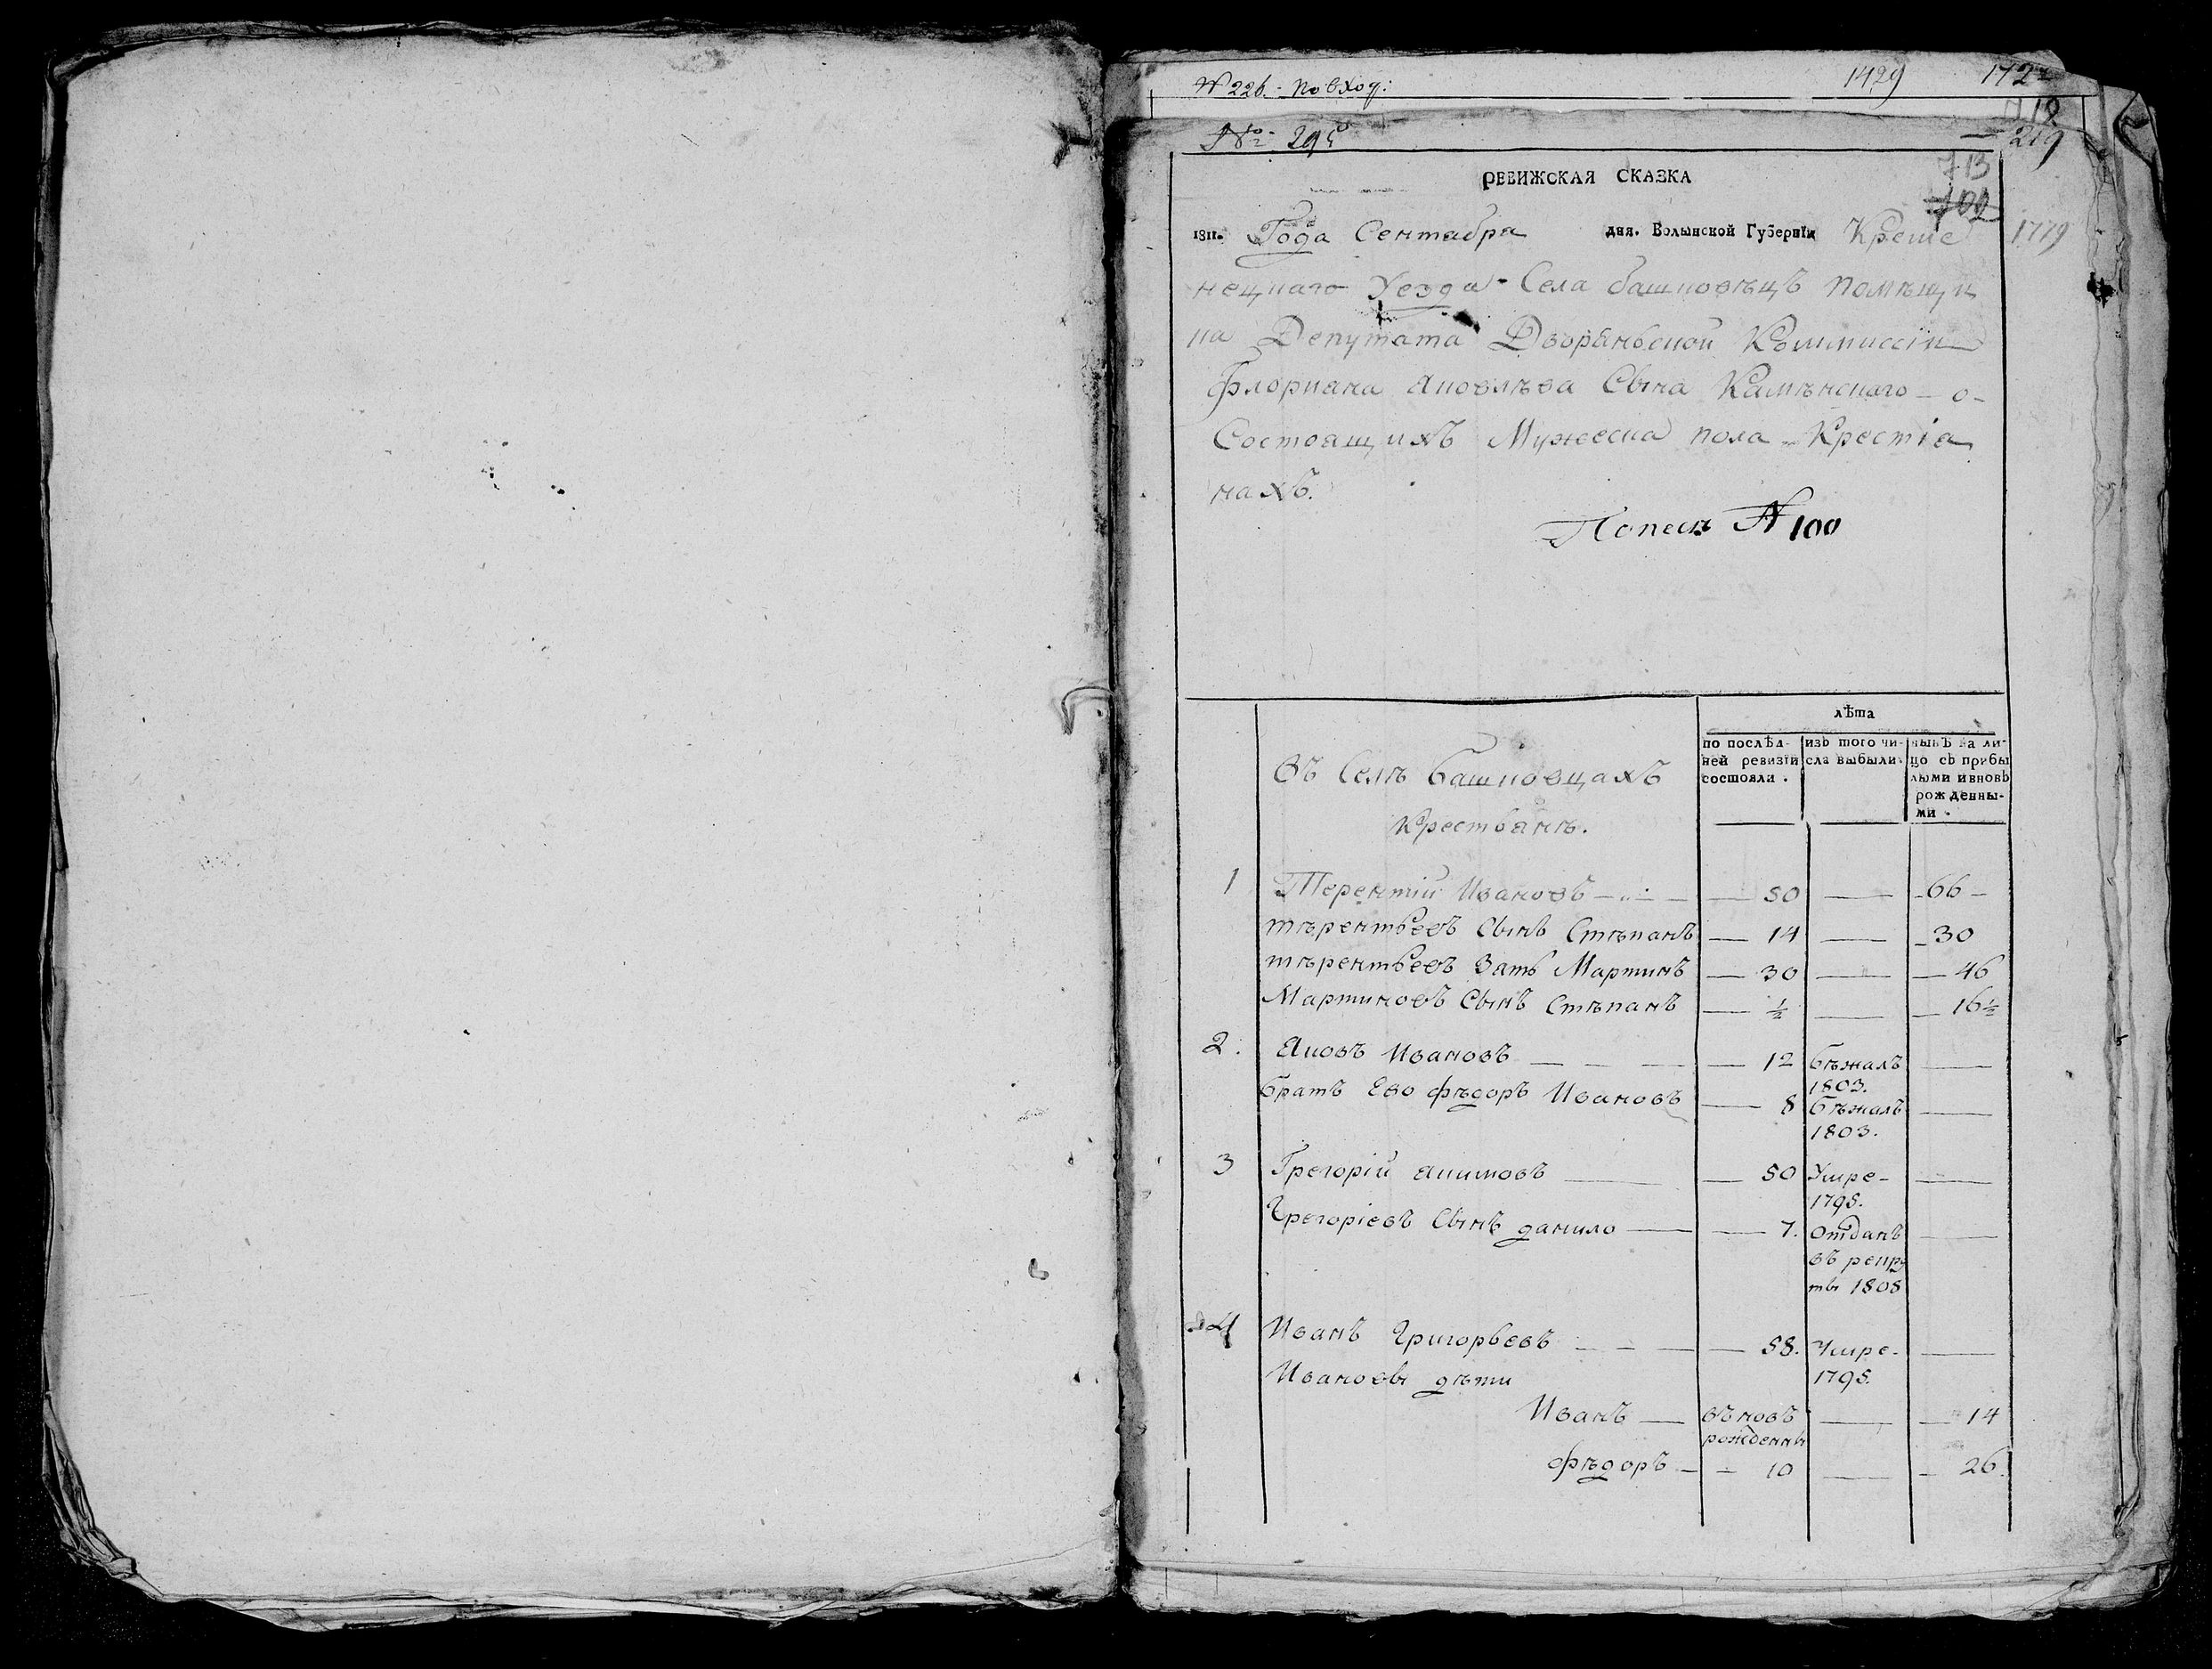 № 226. по вход: 1429 172
№ 295 219
713
702
РЕВИЖСКАЯ СКАЗКА
1811. Года Сентабра дня. Волынской Губерніи Креме 1779
нецкаго Уезда Села башковѣцъ помѣщи
ка Депутата Двораньской Коммиссіи
Флориана Яковлѣва Сына Камѣнского - о-
Состоящихъ Мужеска пола Крестіа
нахъ.
№ 100
лѣта
по послѣд-ней ревизіи состояли. изъ того чи-сла выбыли. нынѣ на ли-цо съ прибы лыми и вновь рожденны-ми.
Въ Селѣ башковцахъ
Крестьянъ.
1 Терентій Ивановъ — 50 — 66 —
тѣрентьевъ Сынъ Стѣпанъ — 14 — 30
тѣрентьевъ Зать Мартинъ — 30 — 46
Мартиновъ Сынъ Стѣпанъ — ½ — 16½
2. Яковъ Ивановъ — 12 бѣжалъ 1803. —
братъ Ево фѣдоръ Ивановъ — 8 бѣжалъ 1803. —
3 Грегорій якимовъ — 50 Умре- 1795. —
Грегоріевъ Сынъ данило — 7. Отданъ въ рекру ты 1808 —
4 Иванъ Григорьевъ — 58. Умре- 1795. —
Ивановы дѣти
Иванъ — въновъ рожденны — 14
фѣдоръ — 10 — 26.